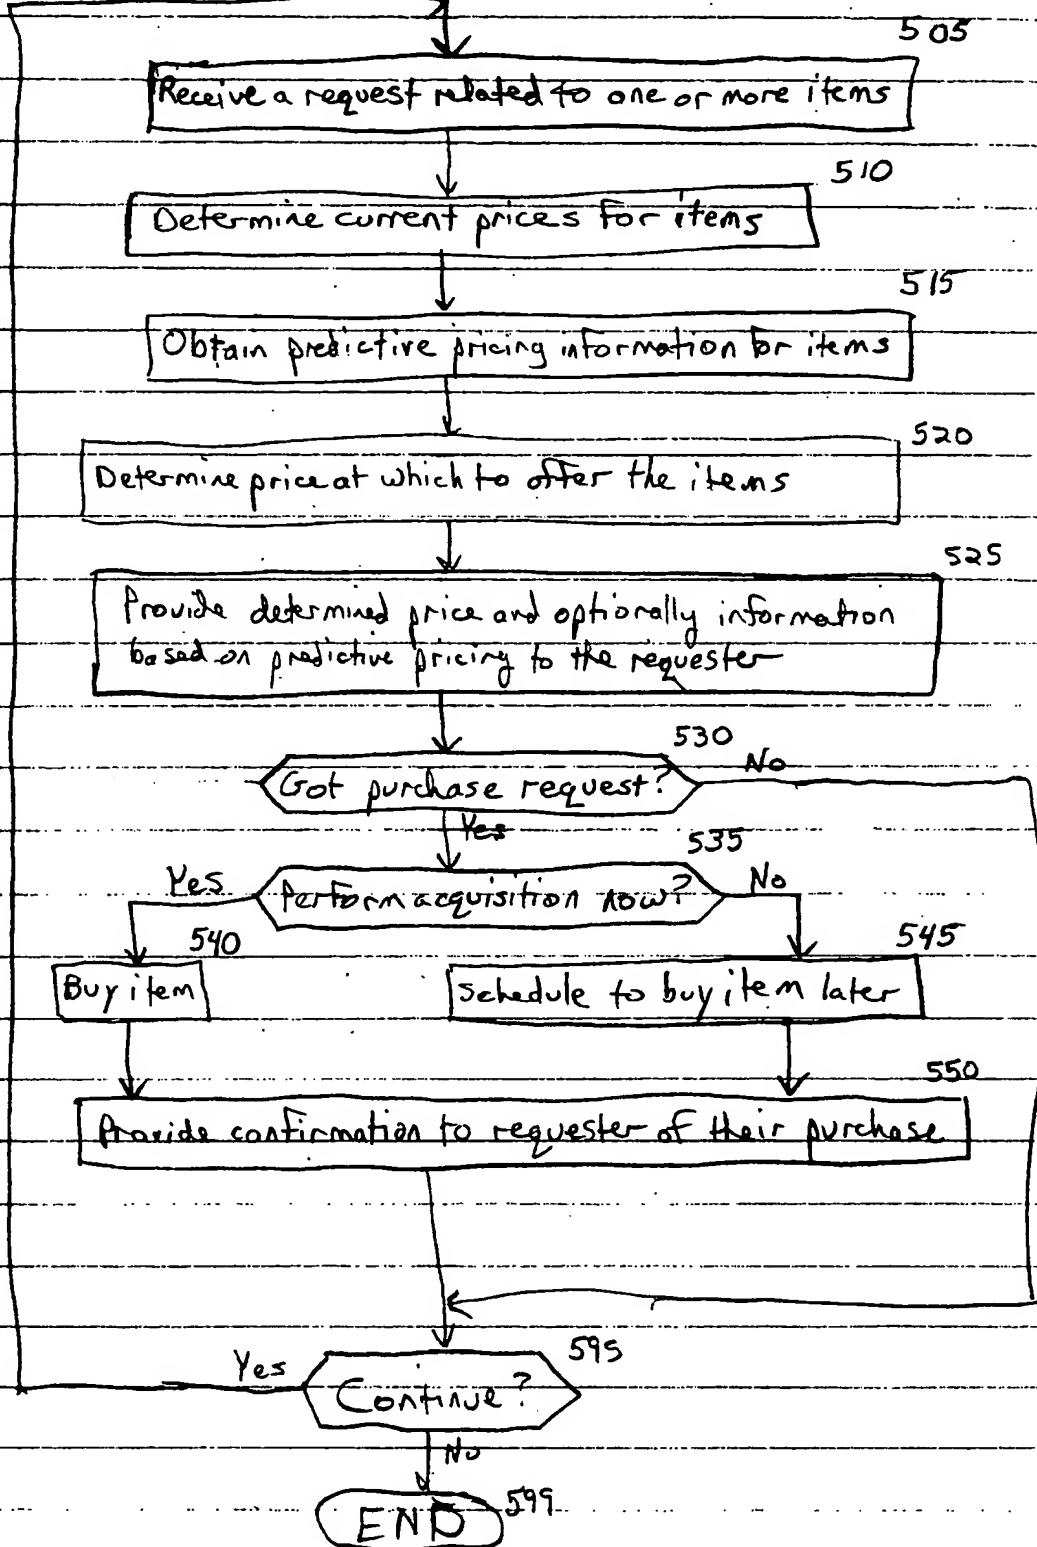 505
Receive a request related to one or more items
510
Determine current prices for items
515
Obtain predictive pricing information for items
520
Determine price at which to offer the items
525
Provide determined price and optionally information
based on predictive pricing to the requester
530
Got purchase request?
No
Yes
535
Yes
Perform acquisition now?
No
540
545
Buy item
Schedule to buy item later
550
Provide confirmation to requester of their purchase
595
Yes
Continue?
No
END
599